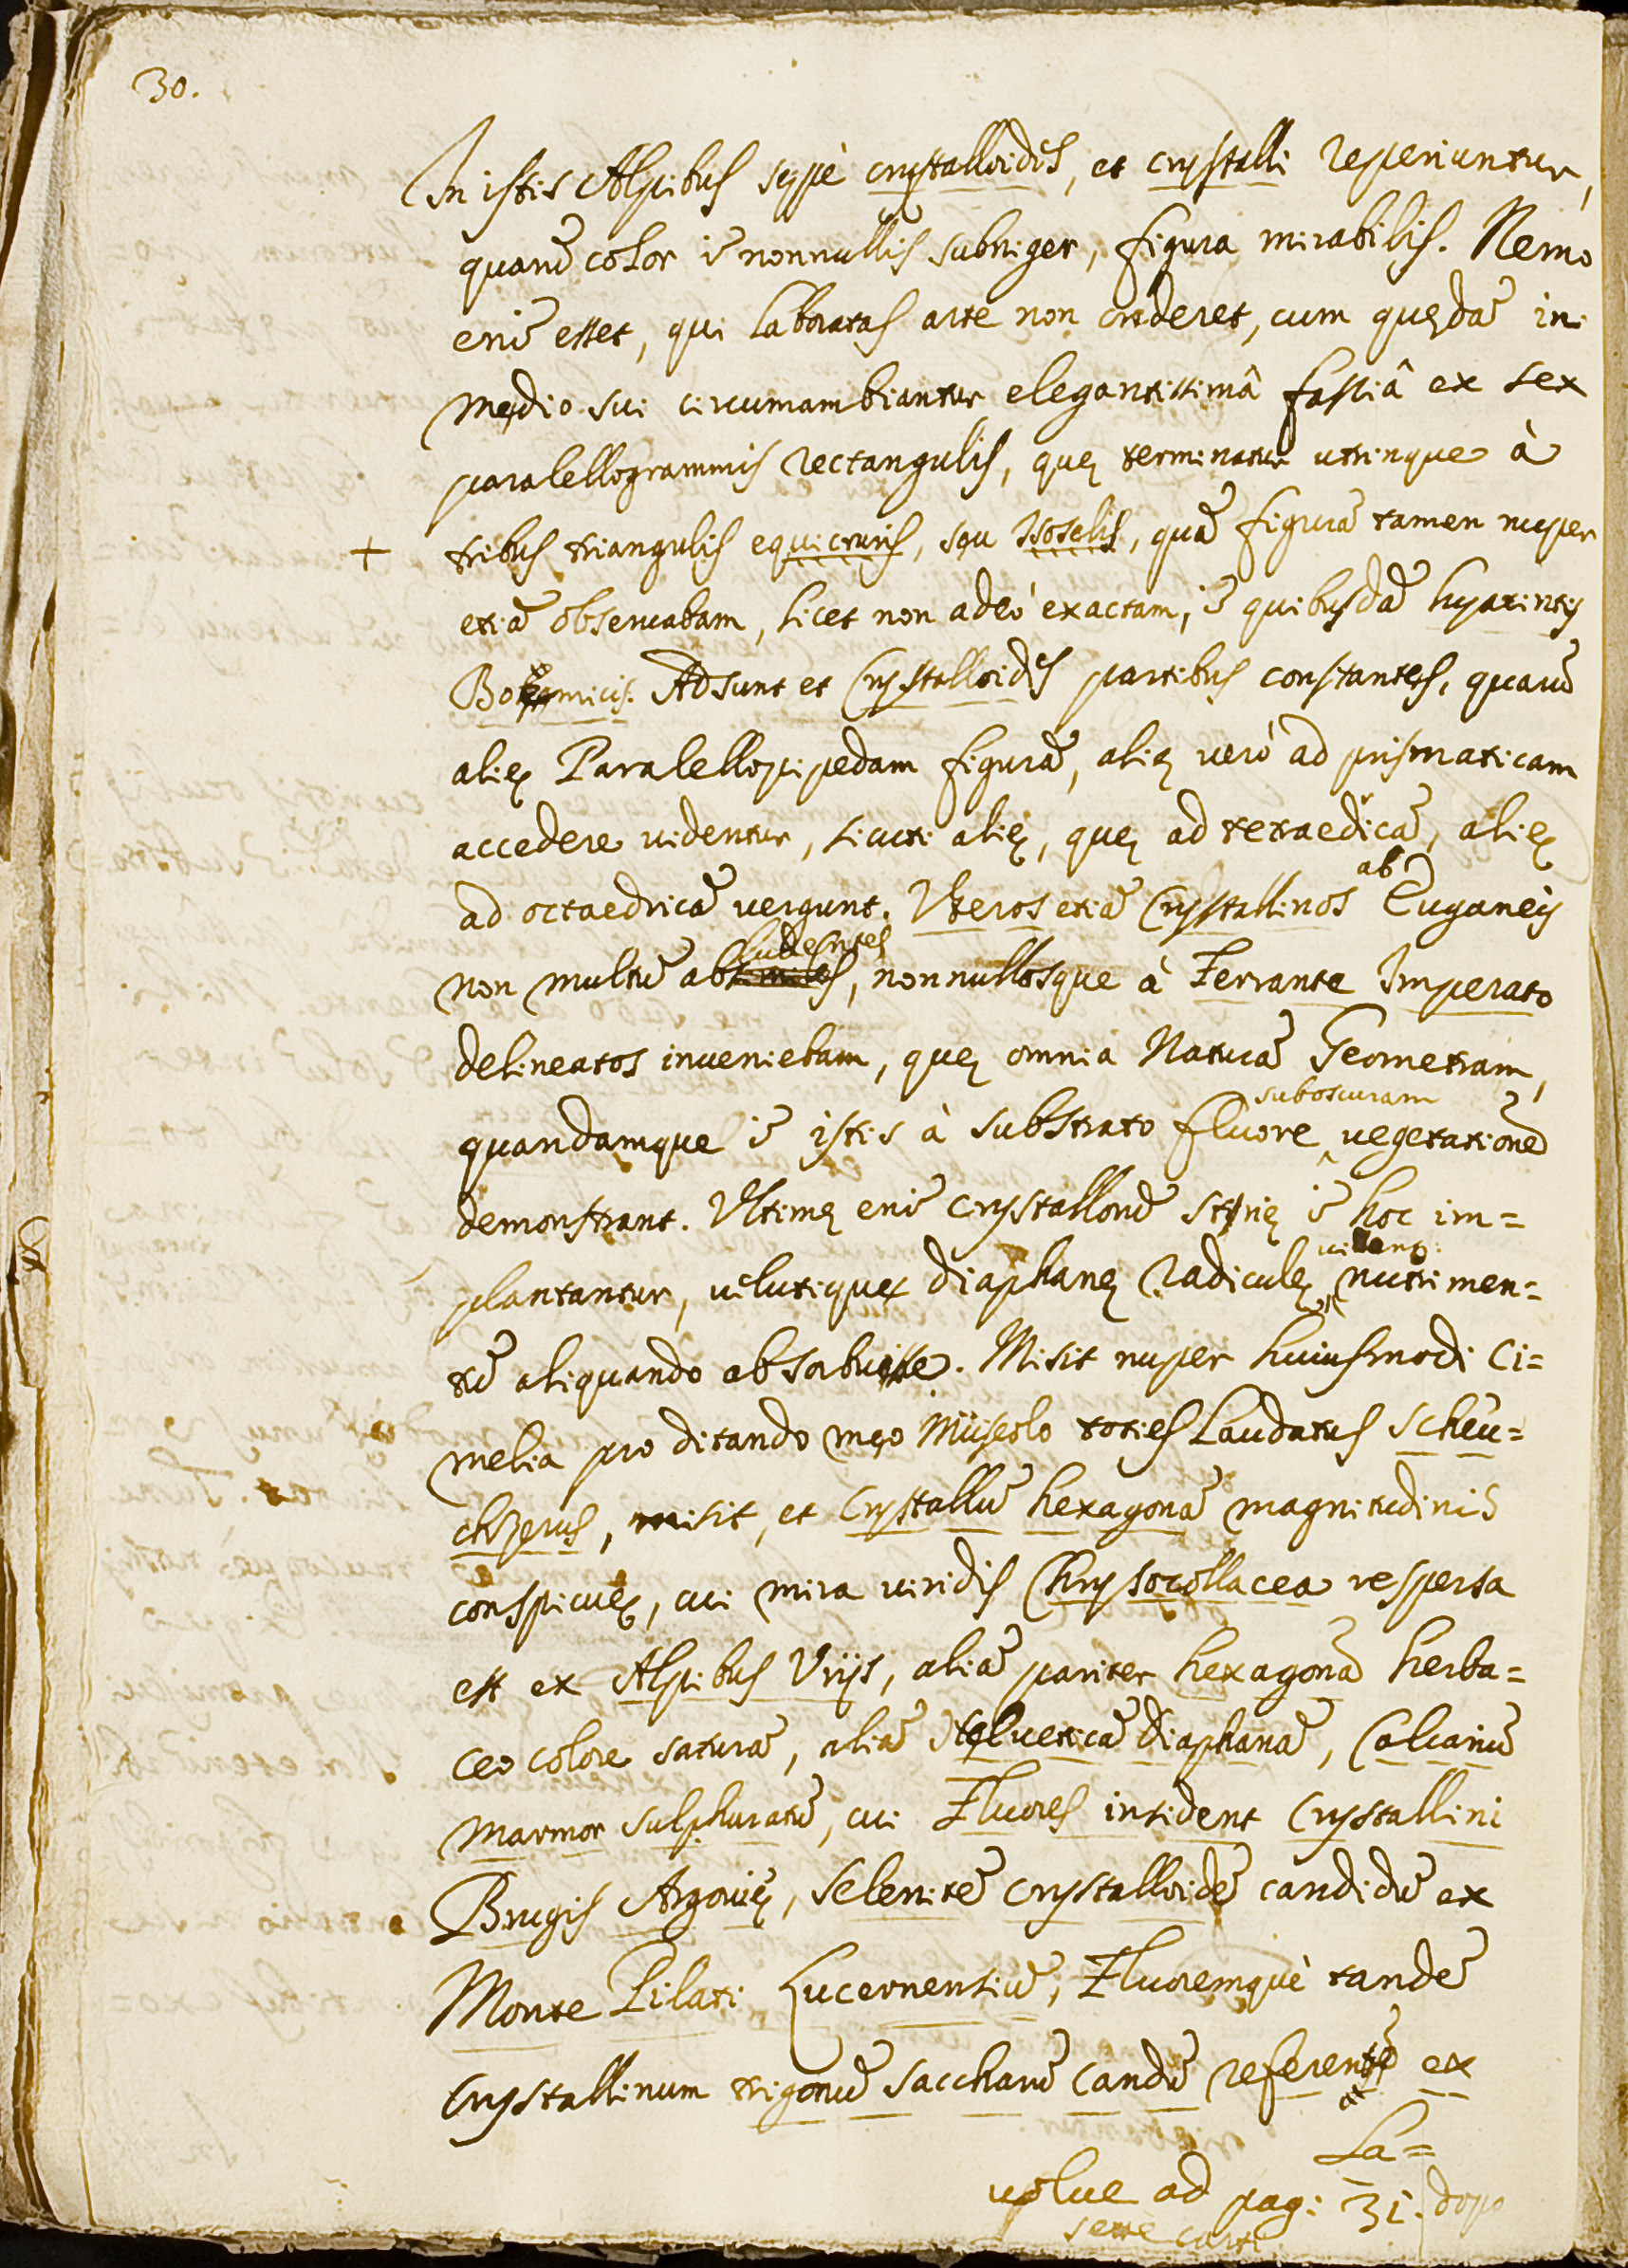 30.
In istis Alpibus sępè crystalloides, et crystalli reperiuntur,
quarū color ī nonnullis subniger, figura mirabilis. Nemo
enī esset, qui laboratas arte non crederet, cum quędā in
medio sui circumambiantur elegantissimâ fasciâ ex sex
paralellogrammis rectangulis, quę terminatur utrinque à
+ tribus triangulis equicruris, seu Isoselis, quā figurā tamen nuper
etiā observabam, licet non adeó exactam, ī quibusdā hyacintis
Bohemicis. Adsunt et Crystalloides partibus constantes, quarū
alię Paralellopipedam figurā, alię veró ad prismaticam
accedere videntur, sicuti alię, quę ad tetraedicā, alię
ad octaedricā vergunt. Uteros etiā Crystallinos ab Euganeis
non multū abludentes, nonnullosque à Ferrante Imperato
delineatos inveniebam, quę omnia Naturā Geometram,
quandamque ī istis à substrato fluore suboscuram vegetationē
demonstrant. Ultimę enī crystallorū strię ī hoc im=
plantantur, velutique diaphanę radiculę nutrimen=
tū aliquando absorbuisse. Misit nuper huiusmodi Ci=
melia pro ditando meo Müseolo toties Laudatus Scheu=
chzerus, misit, et Crystallū hexagonā magnitudinis
conspicuę, cui mira viridis Chrysocollacea respersa
est ex Alpibus Vrijs, aliā pariter hexagonā herba=
ceo colore saturā, aliā Helveticā diaphanā, Calcariū
marmor sulphuratū, cui Fluores insident Crystallini
Brugis Argovię, Selenitē crystalloidē candidū ex
Monte Pilati Lucernensiū, Fluoremquè tandē
Crystallinum trigonū saccharū candū referentē ex
La=
volue ad pag: 31. dopo
sette carte